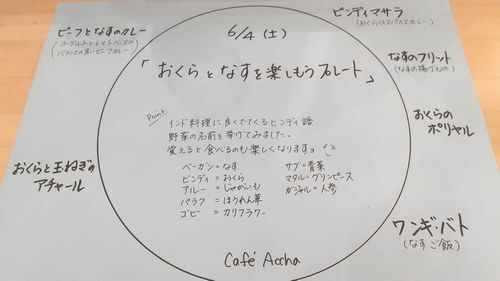 6/4 (土)
「おくらとなすを楽しもうプレート」
ビーフとなすのカレー
(ヨーグルトとトマトベースの
バランスの良いビーフカレー)
ビンディマサラ
(おくらのスパイスカレー)
なすのフリット
(なすの揚げもの)
おくらの
ポリヤル
ワンギ・バト
(なすご飯)
おくらと玉ねぎの
アチャール
Point
インド料理に良くでてくるヒンディ語
野菜の名前を挙げてみました。
覚えると食べるのも楽しくなりますヨ
ベーガン=なす
ビンディ=おくら
アルー=じゃがいも
パラク=ほうれん草
ゴビ=カリフラワー
サグ=青菜
マタル=グリンピース
ガジャル=人参
Café Accha